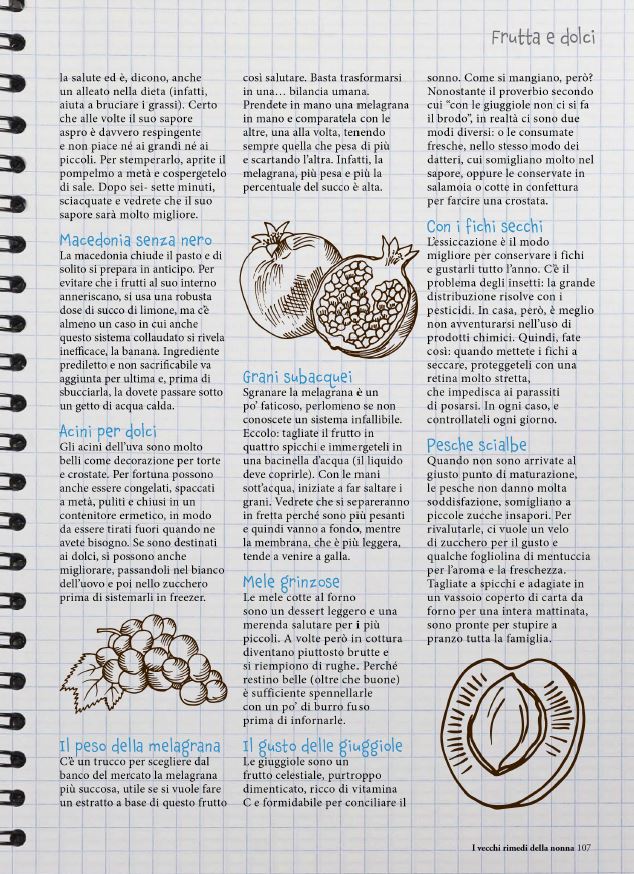 Frutta e dolci
la salute ed è, dicono, anche
un alleato nella dieta (infatti,
aiuta a bruciare i grassi). Certo
che alle volte il suo sapore
aspro è davvero respingente
e non piace né ai grandi né ai
piccoli. Per stemperarlo, aprite il
pompelmo a metà e cospergetelo
di sale. Dopo sei- sette minuti,
sciacquate e vedrete che il suo
sapore sarà molto migliore.
Macedonia senza nero
La macedonia chiude il pasto e di
solito si prepara in anticipo. Per
evitare che i frutti al suo interno
anneriscano, si usa una robusta
dose di succo di limone, ma c'è
almeno un caso in cui anche
questo sistema collaudato si rivela
inefficace, la banana. Ingrediente
prediletto e non sacrificabile va
aggiunta per ultima e, prima di
sbucciarla, la dovete passare sotto
un getto di acqua calda.
Acini per dolci
Gli acini dell'uva sono molto
belli come decorazione per torte
e crostate. Per fortuna possono
anche essere congelati, spaccati
a metà, puliti e chiusi in un
contenitore ermetico, in modo
da essere tirati fuori quando ne
avete bisogno. Se sono destinati
ai dolci, si possono anche
migliorare, passandoli nel bianco
dell'uovo e poi nello zucchero
prima di sistemarli in freezer.
Il peso della melagrana
C'è un trucco per scegliere dal
banco del mercato la melagrana
più succosa, utile se si vuole fare
un estratto a base di questo frutto
così salutare. Basta trasformarsi
in una… bilancia umana.
Prendete in mano una melagrana
in mano e comparatela con le
altre, una alla volta, tenendo
sempre quella che pesa di più
e scartando l'altra. Infatti, la
melagrana, più pesa e più la
percentuale del succo è alta.
Grani subacquei
Sgranare la melagrana è un
po' faticoso, perlomeno se non
conoscete un sistema infallibile.
Eccolo: tagliate il frutto in
quattro spicchi e immergeteli in
una bacinella d'acqua (il liquido
deve coprirle). Con le mani
sott'acqua, iniziate a far saltare i
grani. Vedrete che si separeranno
in fretta perché sono più pesanti
e quindi vanno a fondo, mentre
la membrana, che è più leggera,
tende a venire a galla.
Mele grinzose
Le mele cotte al forno
sono un dessert leggero e una
merenda salutare per i più
piccoli. A volte però in cottura
diventano piuttosto brutte e
si riempiono di rughe. Perché
restino belle (oltre che buone)
è sufficiente spennellarle
con un po' di burro fuso
prima di infornarle.
Il gusto delle giuggiole
Le giuggiole sono un
frutto celestiale, purtroppo
dimenticato, ricco di vitamina
C e formidabile per conciliare il
sonno. Come si mangiano, però?
Nonostante il proverbio secondo
cui "con le giuggiole non ci si fa
il brodo", in realtà ci sono due
modi diversi: o le consumate
fresche, nello stesso modo dei
datteri, cui somigliano molto nel
sapore, oppure le conservate in
salamoia o cotte in confettura
per farcire una crostata.
Con i fichi secchi
L'essiccazione è il modo
migliore per conservare i fichi
e gustarli tutto l'anno. C'è il
problema degli insetti: la grande
distribuzione risolve con i
pesticidi. In casa, però, è meglio
non avventurarsi nell'uso di
prodotti chimici. Quindi, fate
così: quando mettete i fichi a
seccare, proteggeteli con una
retina molto stretta,
che impedisca ai parassiti
di posarsi. In ogni caso, e
controllateli ogni giorno.
Pesche scialbe
Quando non sono arrivate al
giusto punto di maturazione,
le pesche non danno molta
soddisfazione, somigliano a
piccole zucche insapori. Per
rivalutarle, ci vuole un velo
di zucchero per il gusto e
qualche fogliolina di mentuccia
per l'aroma e la freschezza.
Tagliate a spicchi e adagiate in
un vassoio coperto di carta da
forno per una intera mattinata,
sono pronte per stupire a
pranzo tutta la famiglia.
I vecchi rimedi della nonna 107